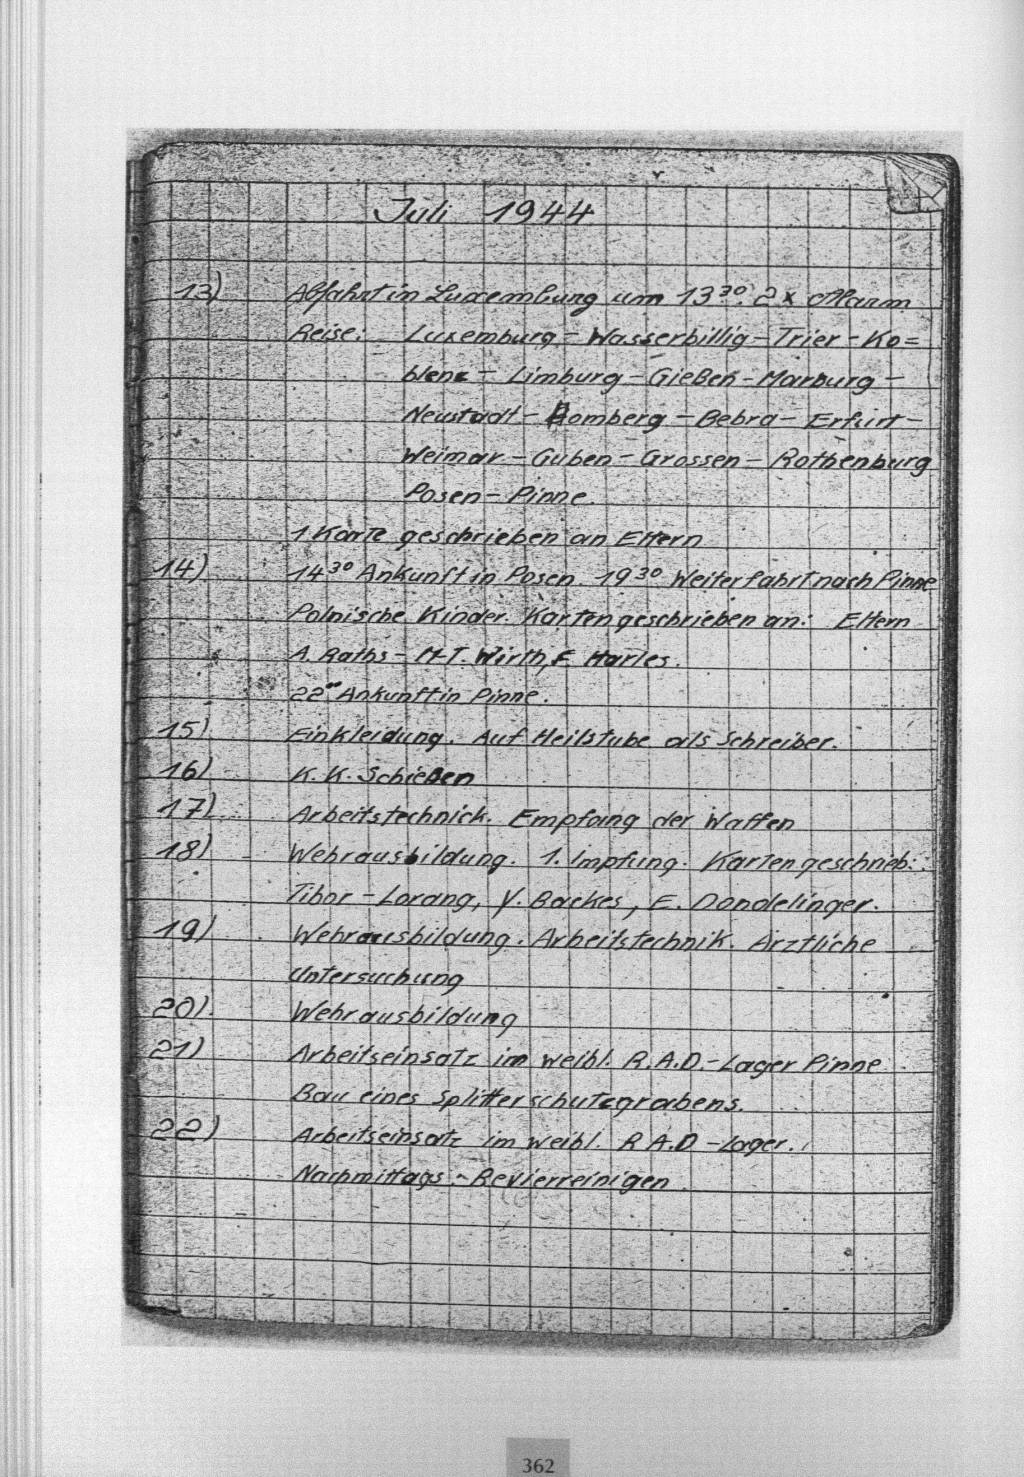 Juli 1944
13) Abfahrt in Luxemburg um 13³⁰. 2 x Alarm
Reise: Luxemburg - Wasserbillig - Trier - Ko=
blenz - Limburg - Gießen - Marburg -
Neustadt - Homberg - Bebra - Erfurt -
Weimar - Guben - Crossen - Rothenburg
Posen - Pinne.
1 Karte geschrieben an Eltern
14) 14³⁰ Ankunft in Posen. 19³⁰ Weiterfahrt nach Pinne
Polnische Kinder. Karten geschrieben an: Eltern
A. Raths - M-T. Wirth, F. Harles.
22°° Ankunft in Pinne.
15) Einkleidung. Auf Heilstube als Schreiber.
16) K. K. Schießen
17) Arbeitstechnick. Empfang der Waffen
18) Wehrausbildung. 1. Impfung. Karten geschrieb.:
Tibor - Lorang, V. Backes, E. Dondelinger.
19) Wehrausbildung. Arbeitstechnik. Ärztliche
Untersuchung
20) Wehrausbildung
21) Arbeitseinsatz im weibl. R.A.D.-Lager Pinne
Bau eines Splitterschutzgrabens.
22) Arbeitseinsatz im weibl. R.A.D-Lager.
Nachmittags - Revierreinigen
362